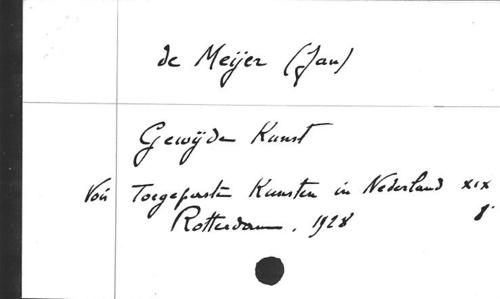 de Meijer (Jan)
Gewijde Kunst
Voir Toegepaste Kunsten in Nederland XIX
Rotterdam, 1928 8°